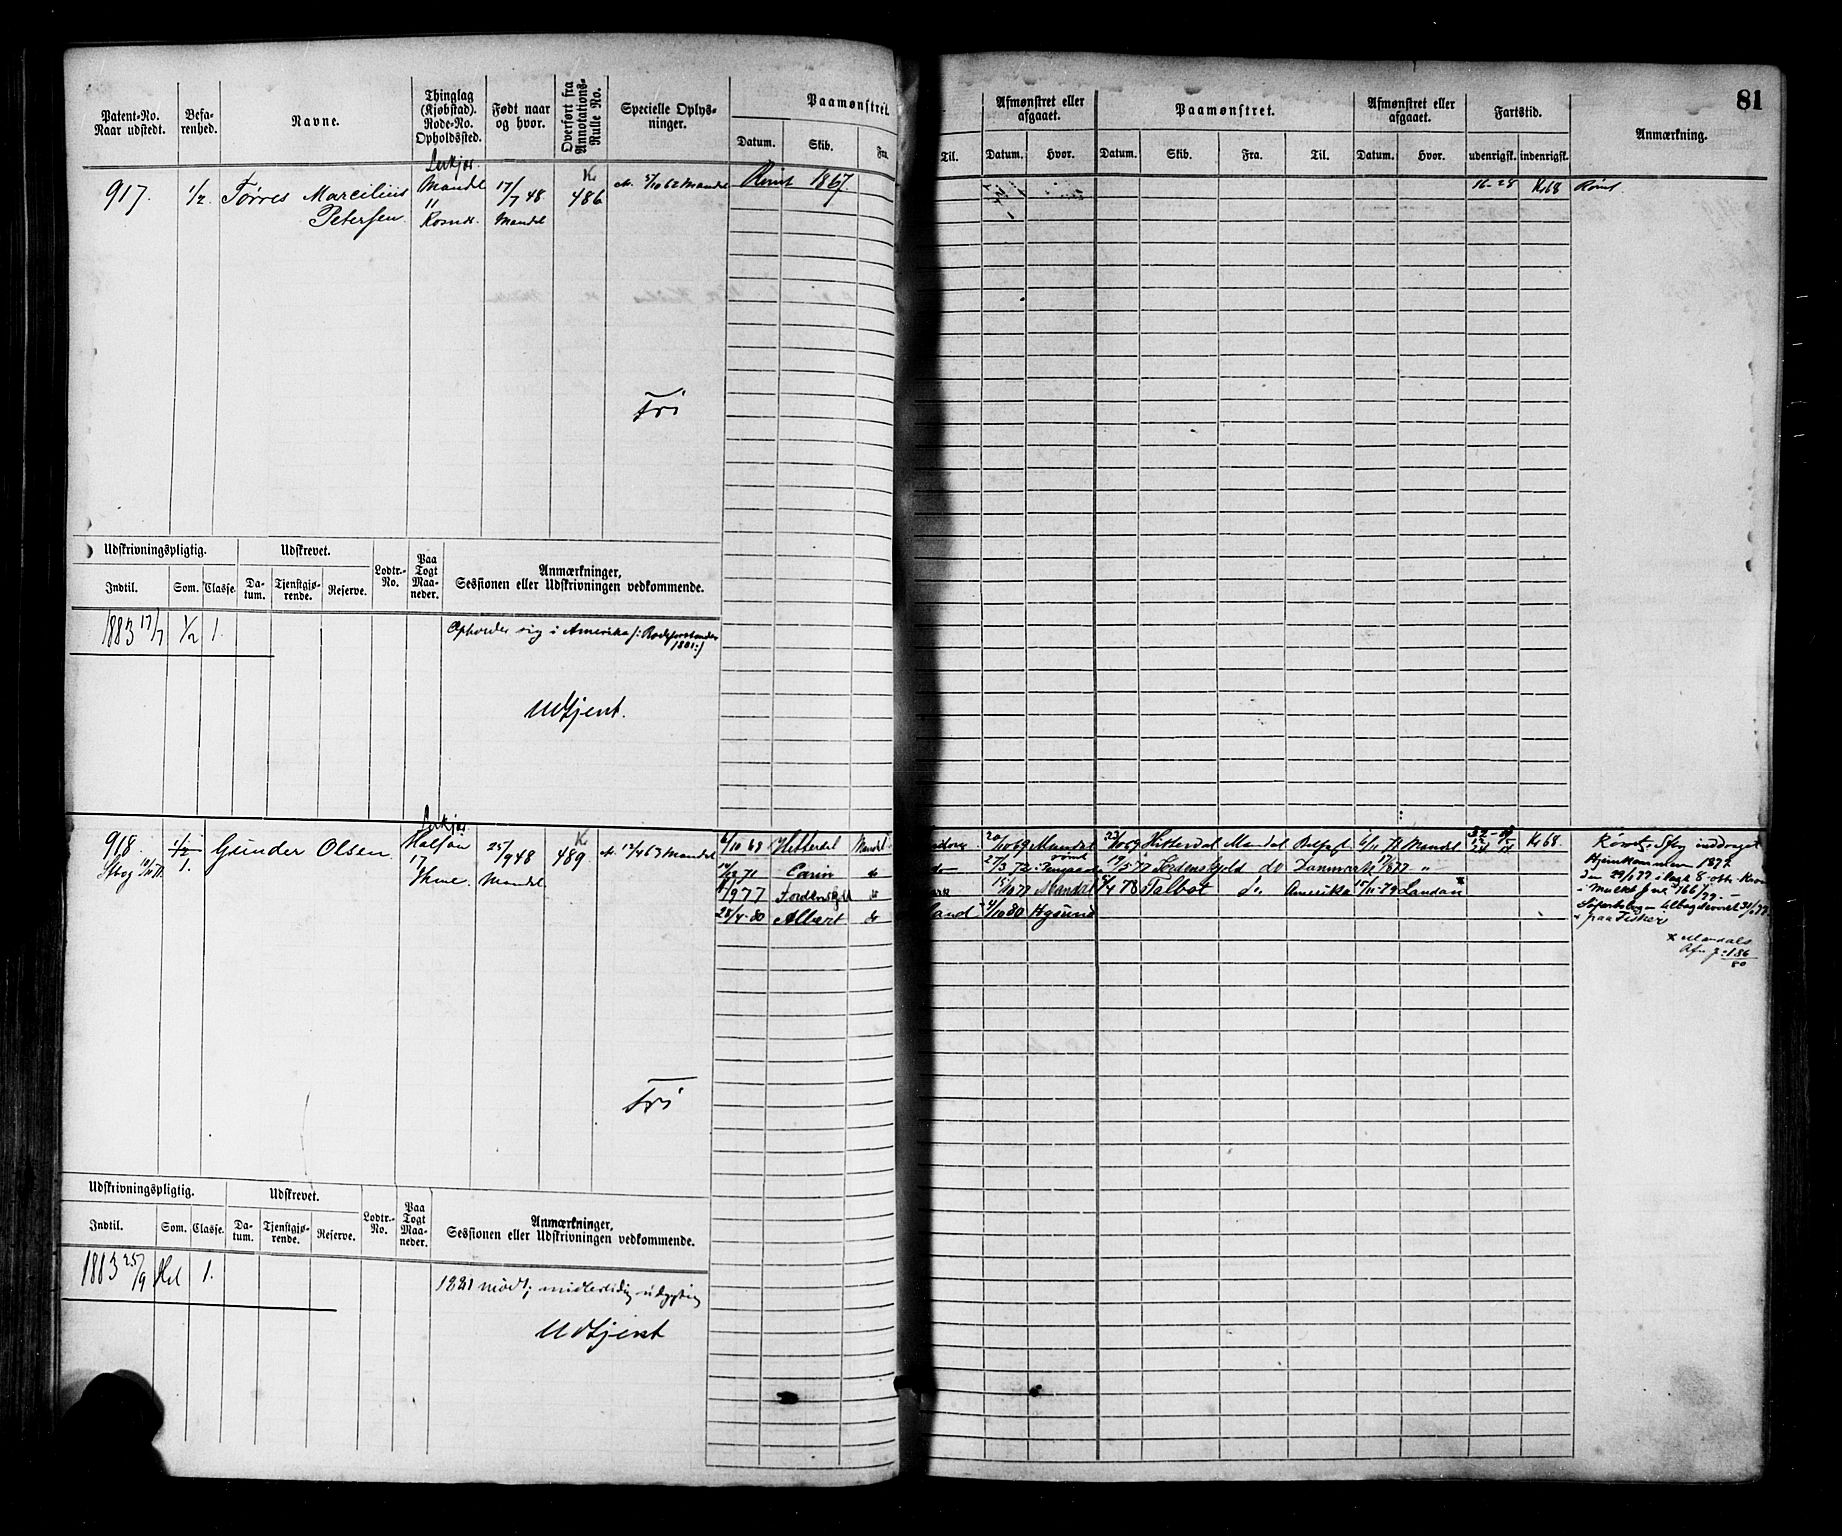 81
Patent-No. Naar udstedt.
Befarenhed.
Navne.
Thinglag (Kjøbstad). Rode-No. Opholdssted.
Født naar og hvor.
Overført fra Annotations-Rulle No.
Specielle Oplysninger.
Paamønstret.
Datum. Skib. Fra.
Til.
Afmønstret eller afgaaet.
Datum. Hvor.
Paamønstret.
Datum. Skib. Fra. Til.
Afmønstret eller afgaaet.
Datum. Hvor.
Fartstid.
udenrigsk. indenrigsk.
Anmærkning.
917. 1/2 Tørres Marcilius Mandl 17/7 48 K 486 5/10 62 Mandl Rømt 1867. 16-28 Kr 68 Rømt
Petersen " Mandal
Fri
Udskrivningspligtig. Udskrevet. Lodtr.-No. Paa Togt Maaneder. Anmærkninger, Sessionen eller Udskrivningen vedkommende.
Indtil. Som. Classe. Datum. Tjenstgjørende. Reserve.
1883 17/7 1/2 1. Opholder sig i Amerika /: Rodeforstander
1881:/
Udtjent.
918. 1/2 Gunder Olsen 25/9 48 K 489 17/4 63 Mandal 6/10 68 Hitterdal Mandal 20/10 69 Mandal 23/10 69 Hitterdal Mandal Belfast 6/11 72 Mandal Kr 68
1. 17 Mandal. 14/12 71 Carin do 27/3 72 rømt 19/5 77 Jordenskjold do Danmark 17/8 77 "
9 77 Jordenskjold do 15/10 77 Mandal 78 Talbot do Amerika 79 London x
28/4-80 Albert do land 4/10 80
Hjemkommen 1877
paa Fisker
x Mandals
186/80
Fri
Udskrivningspligtig. Udskrevet. Lodtr.-No. Paa Togt Maaneder. Anmærkninger, Sessionen eller Udskrivningen vedkommende.
Indtil. Som. Classe. Datum. Tjenstgjørende. Reserve.
1883 25/9 Hel 1. 1881 mødt; midlertidig udygtig
Udtjent